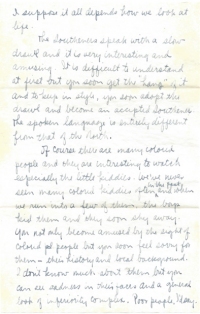 I suppose it all depends how we look at
life.
The Southerners speak with a slow
drawl and it is very interesting and
amusing. It is difficult to understand
at first but you soon get the "hang" of it
and to keep in style, you soon adopt this
drawl and become an accepted Southerner
the spoken language is entirely different
from that of the North.
Of course there are many colored
people and they are interesting to watch
especially the little kiddies. We've never
seen many colored kiddies and when
in the past,
we run into a few of them, the boys
kid them and they soon shy away.
You not only become amused by the sight of
colored people but you soon feel sorry for
them - their history and local background.
I don't know much about them but you
can see sadness in their faces and a general
look of inferiority complex. Poor people,